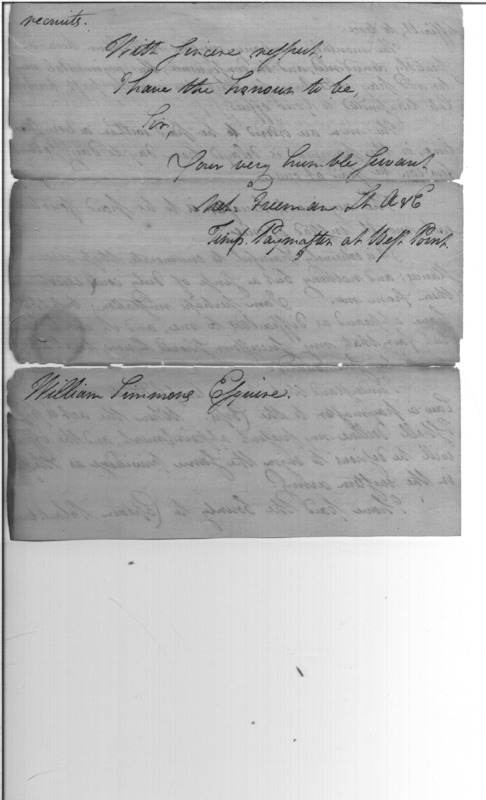 recruits.
With sincere respect
I have the honour to be,
Sir,
Your very humble Servant
Freeman Lt A&E
Temp. Paymaster at West Point.
William Simmons, Esquire.